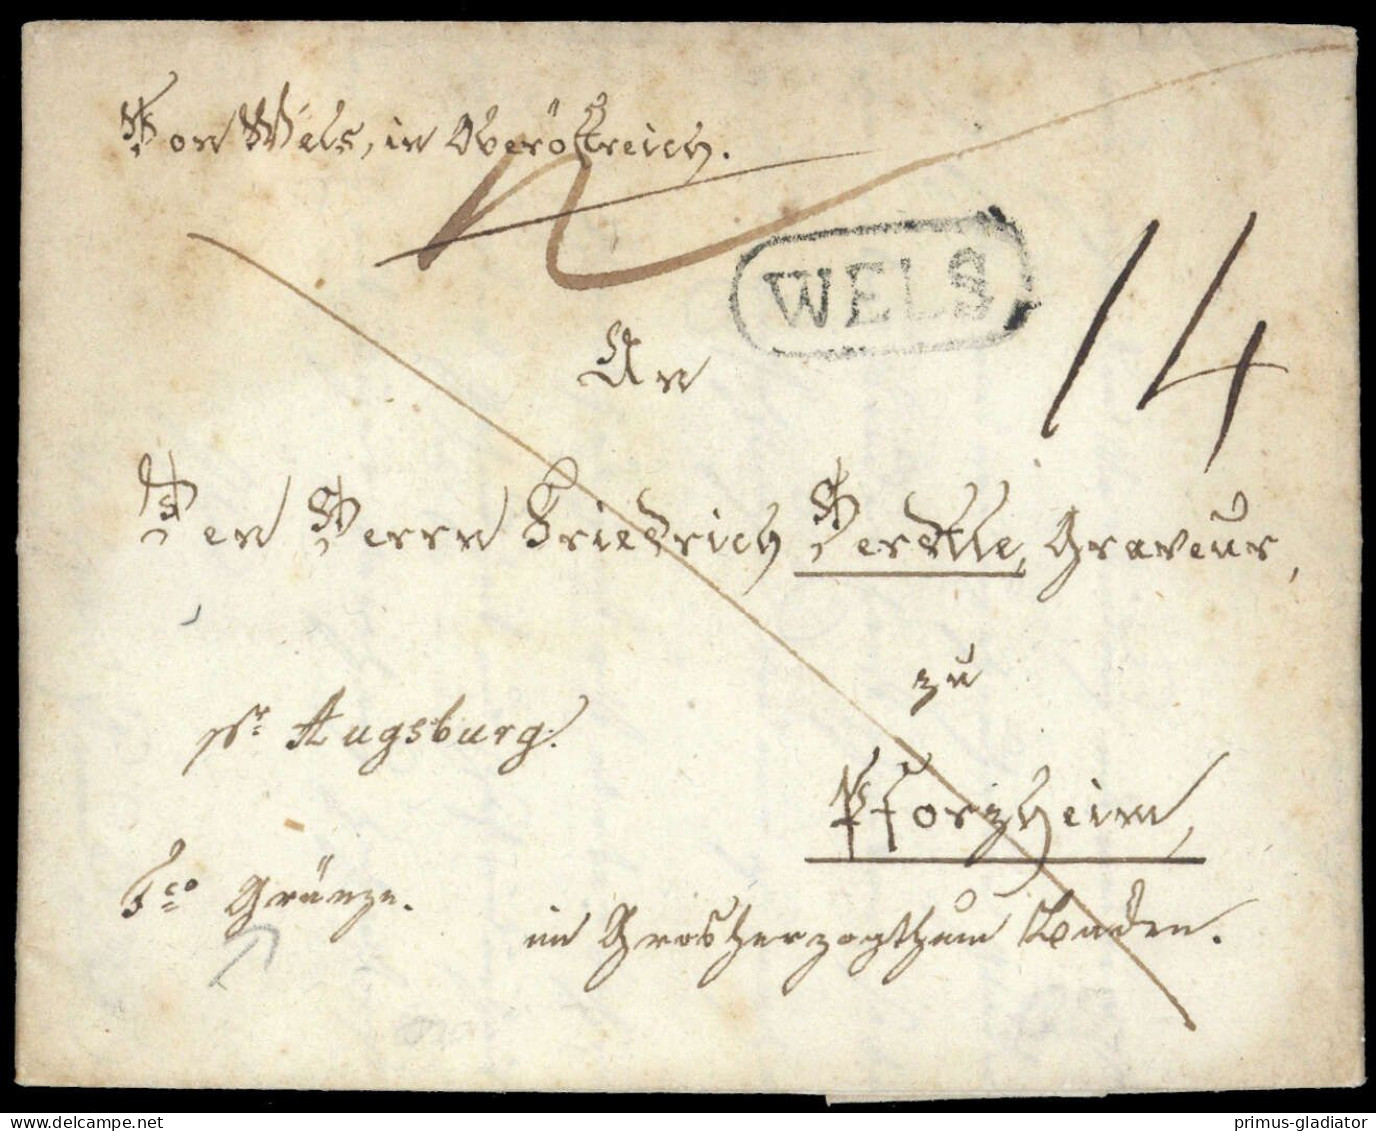 Von Wels, in Oberöstreich.
WELS
14
An
Den Herrn Friedrich Graveur,
zu
pr. Augsburg.
Pforzheim,
Fco Gränze.
im Grosherzogthum Baden.
www.delcampe.net
primus-gladiator